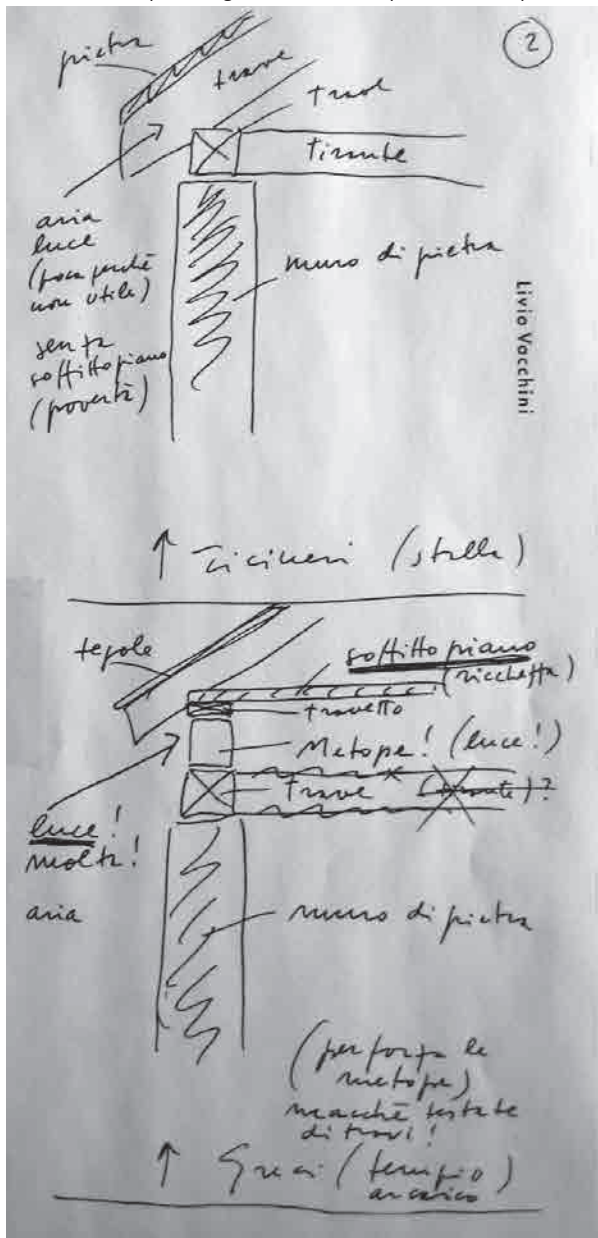 2
pietra
trave
trave
tirante
aria
luce
(poca perchè
non utile)
senza
soffitto piano
(povertà)
muro di pietra
Livio Vacchini
↑ Ticinesi (stalla)
tegole
soffitto piano
(ricchezza)
travetto
Metope! (luce!)
Trave (tirante)?
luce!
molta!
aria
muro di pietra
(per forza le
metope)
macchè testate
di travi!
↑ Greci (tempio
arcaico)